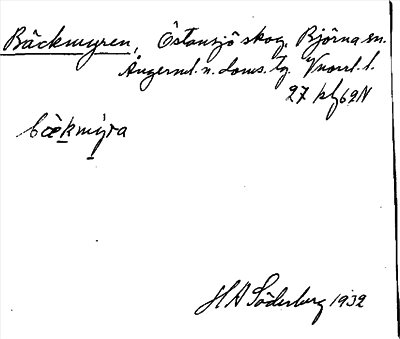 Bäckmyren, Östansjö skog, Björna sn.
Ångerml. n. doms. tg. Vnorrl. l.
27 kbl 62N
bækmýra
H A Söderberg 1932